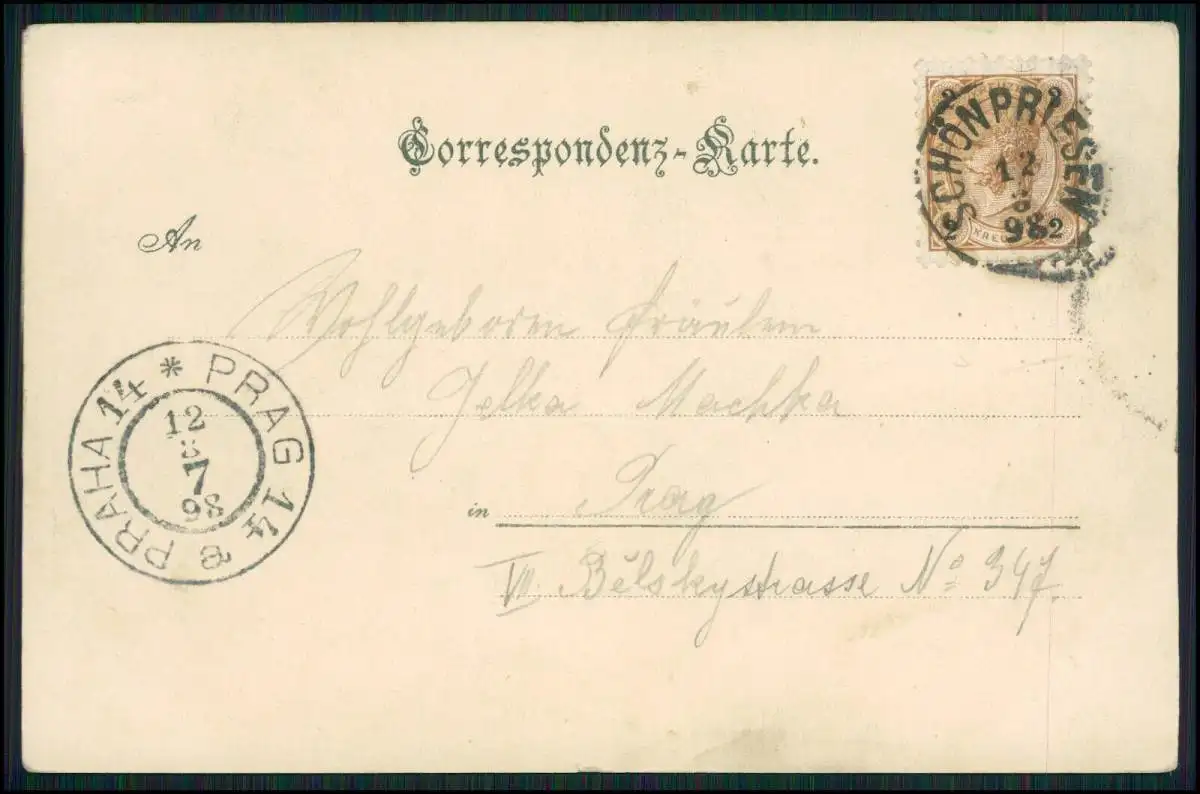 Correspondenz-Karte.
2 2
SCHÖNPRIESEN
12
8
98 2
2
KREU
An
Wohlgeboren Fräulein
Jelka Machka
in Prag
VII Bělskystrasse No 347.
PRAHA 14 * PRAG 14 a
12
8
7
98